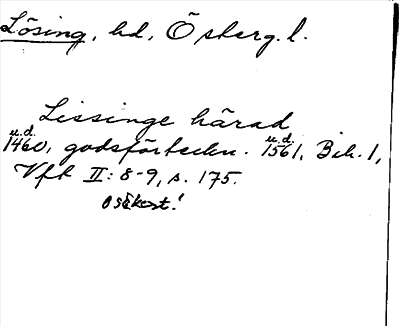 Lösing, hd, Österg. l.
Lissinge härad
u.d. u.d.
1460, godsförteckn. 1561, Bih. 1,
Vft II: 8-9, s. 175.
osäkert!